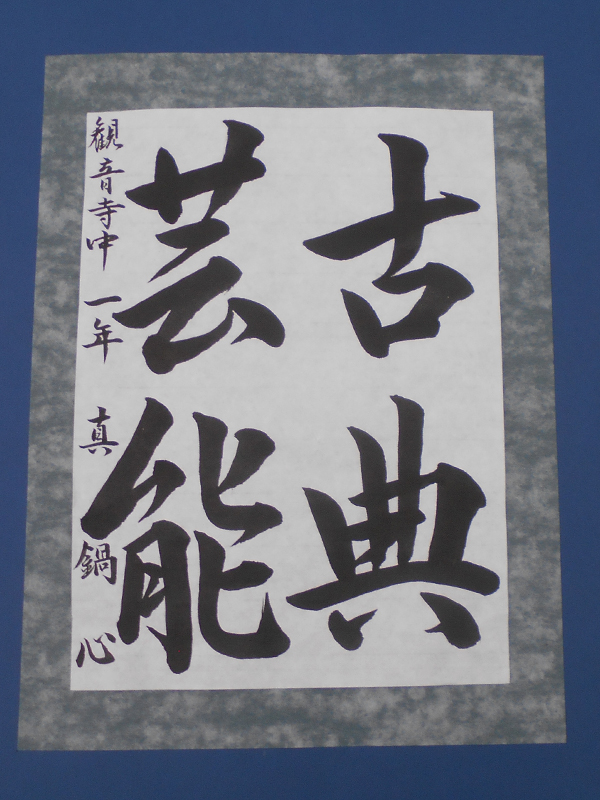 古典
芸能
観音寺中 一年 真鍋 心